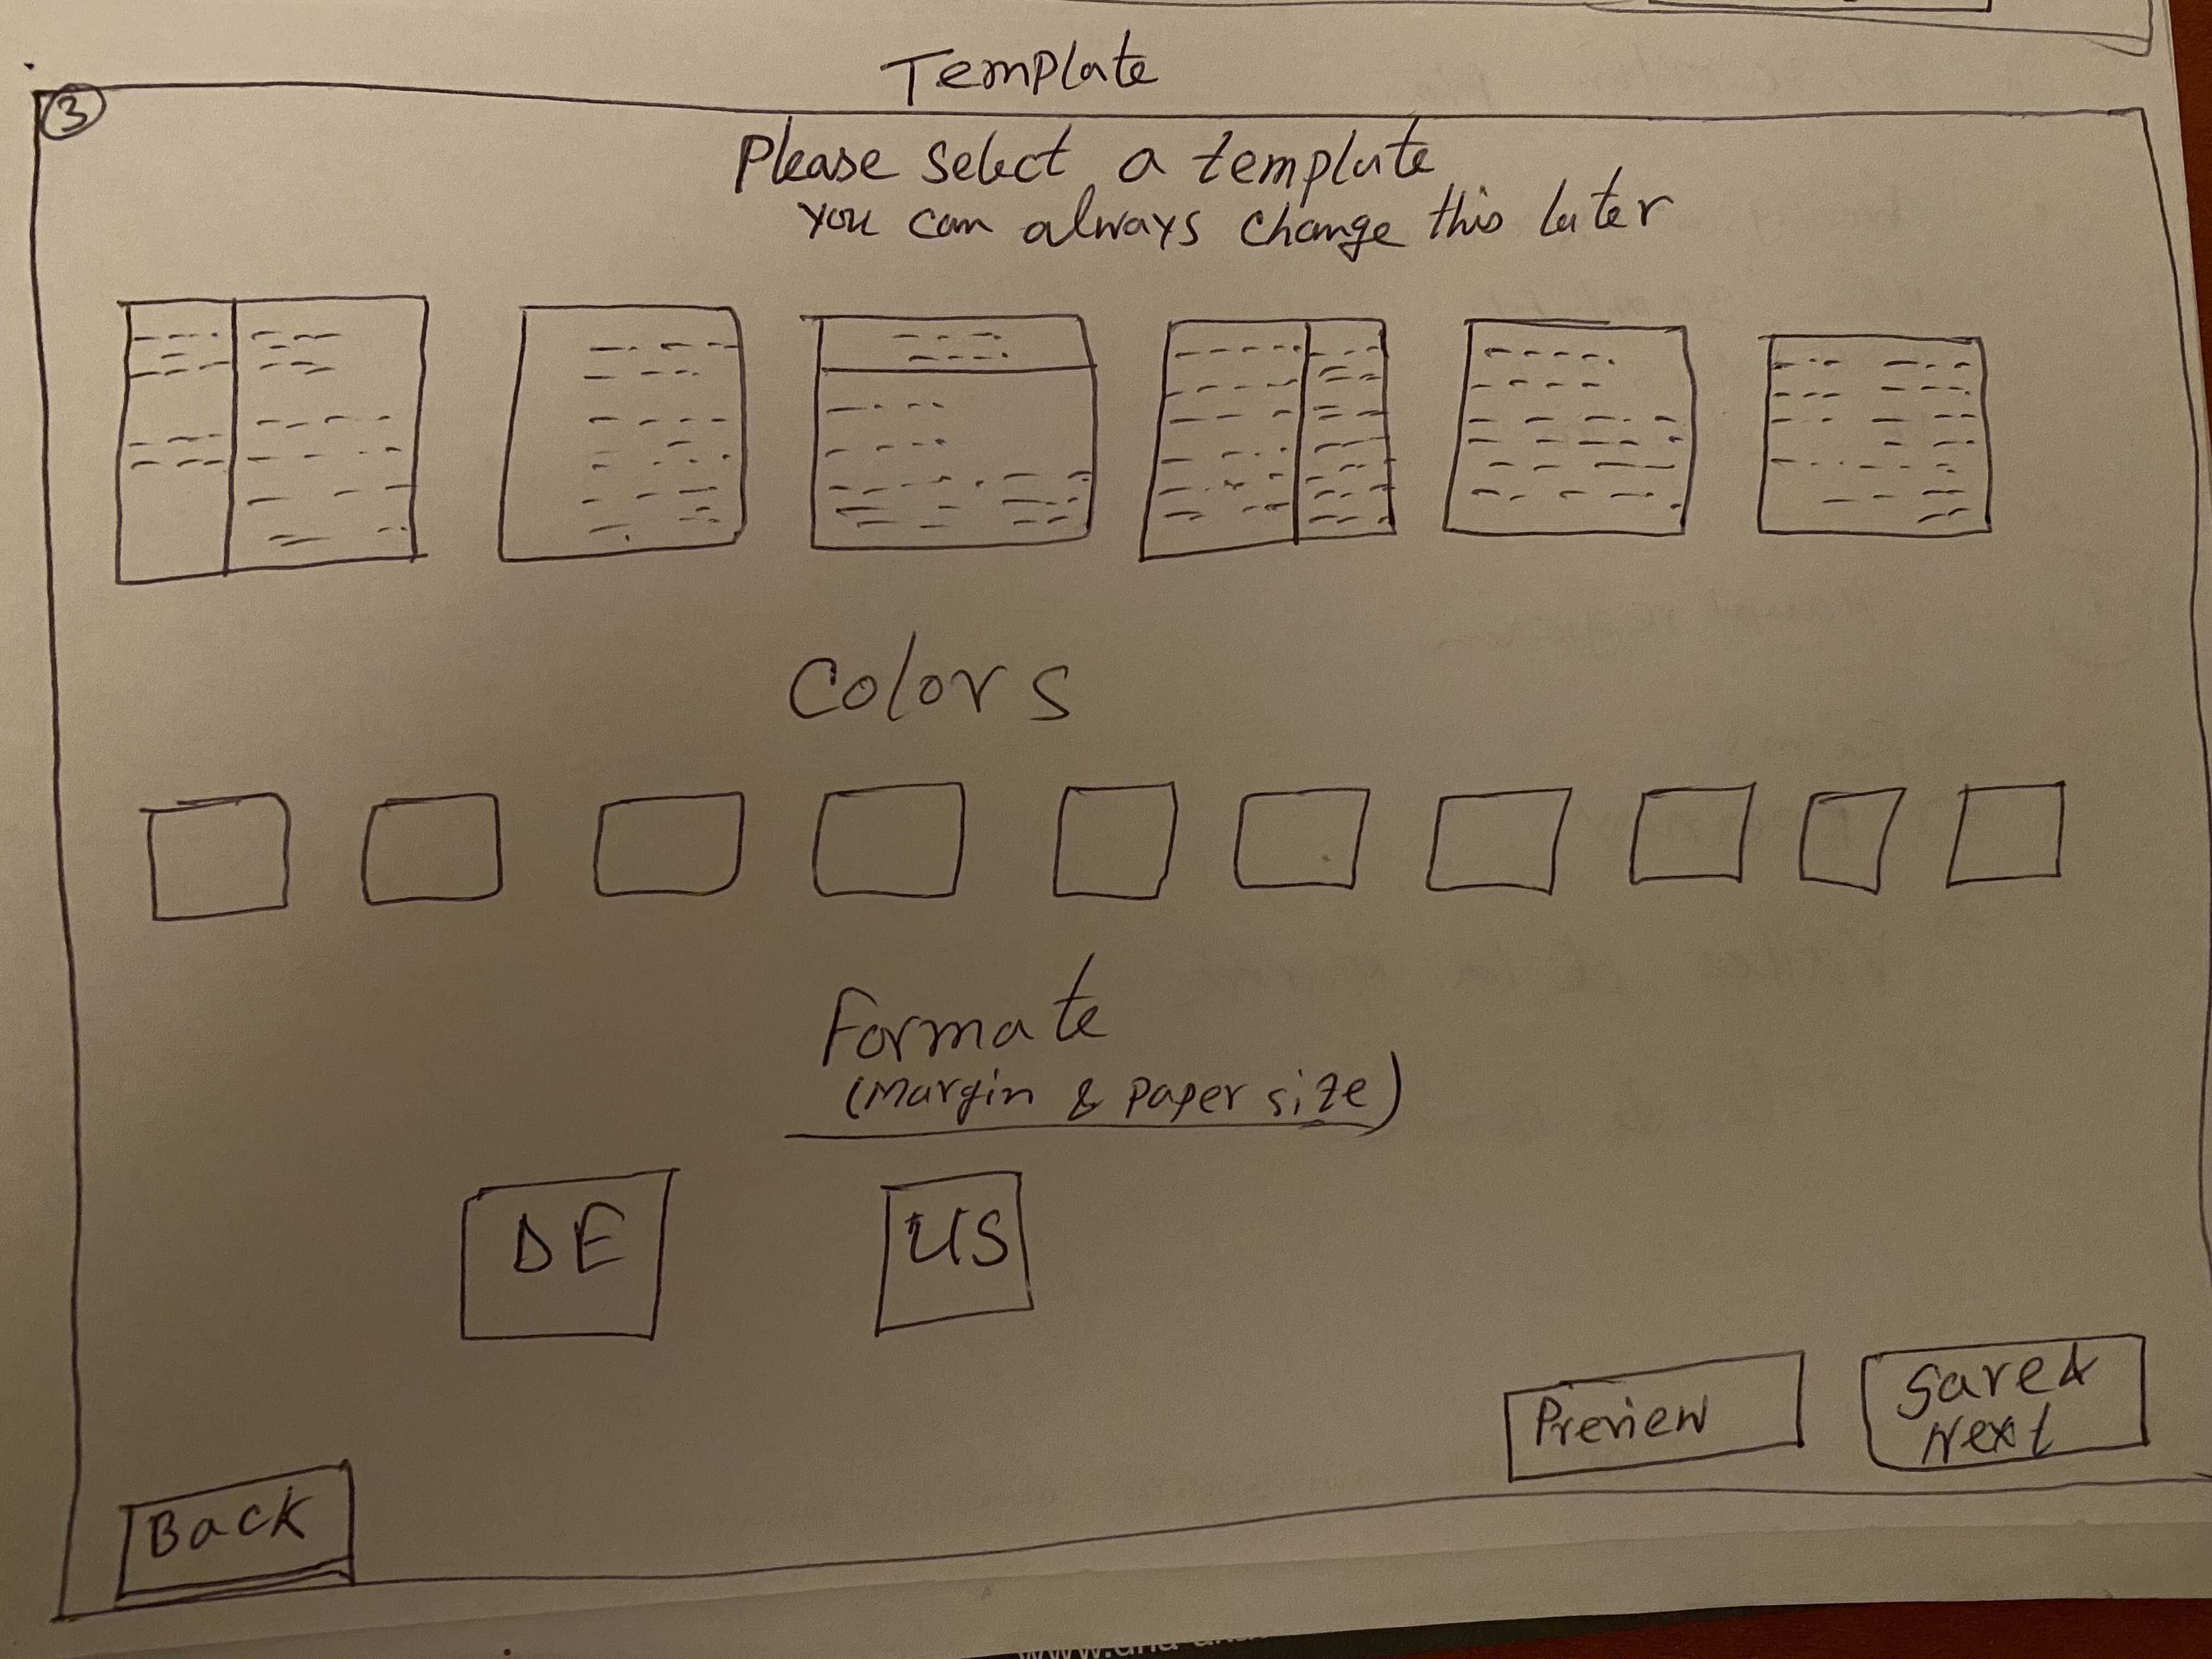 Template
3
Please select a template
you can always change this later
Colors
Formate
(Margin & paper size)
DE
US
Preview
Save &
Next
Back